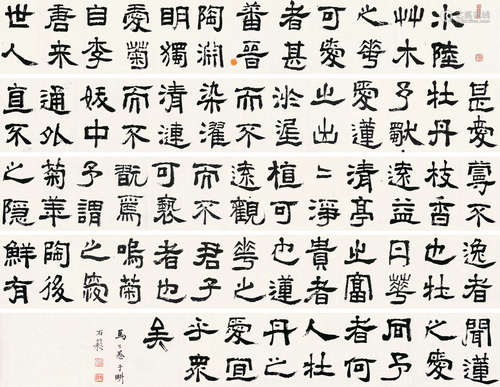 水陸
艸木
之華
可愛
者甚
蕃晉
陶淵
明獨
愛菊
自李
唐來
世人
甚愛
牡丹
予獨
愛蓮
之出
淤泥
而不
染濯
清漣
而不
妖中
通外
直不
蔓不
枝香
遠益
清亭
〻淨
植可
遠觀
而不
可褻
翫焉
予謂
菊華
之隱
逸者
也牡
丹華
之富
貴者
也蓮
華之
君子
者也
菊
之愛
陶後
鮮有
聞蓮
之愛
同予
者何
人牡
丹之
愛宜
乎眾
矣